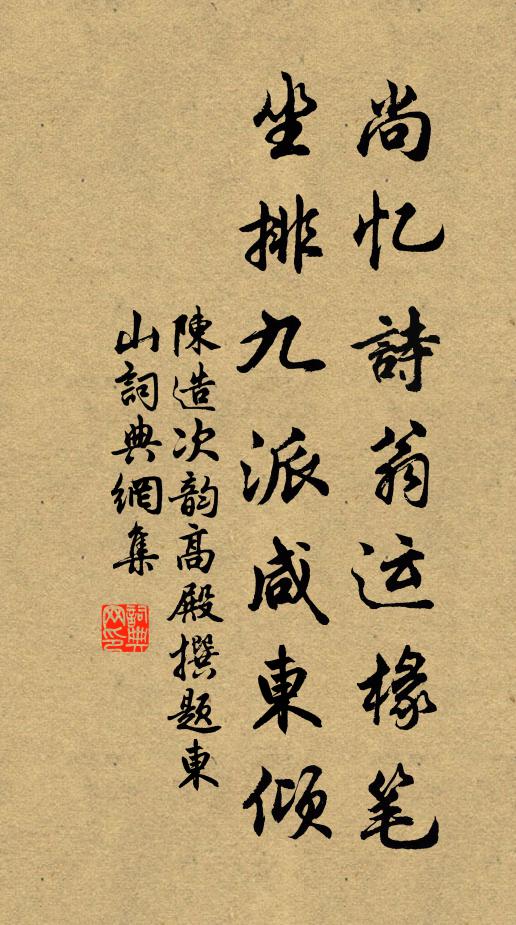 尚忆詩翁运椽笔
坐排九派咸東倾
陳造次韵高殿撰题東
山詞典網集
詞典
网印